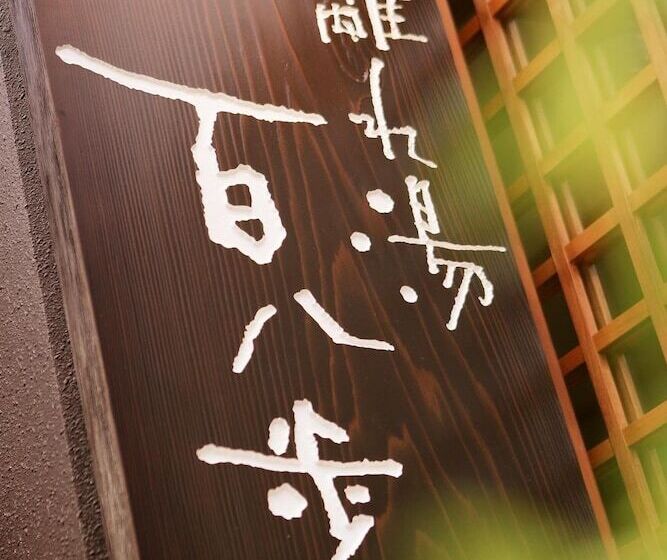 離れ湯
百八歩